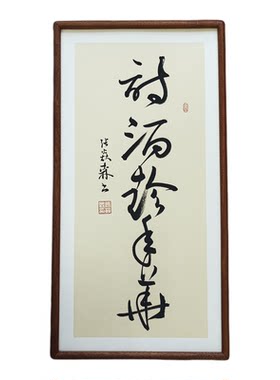 詩酒趁年華